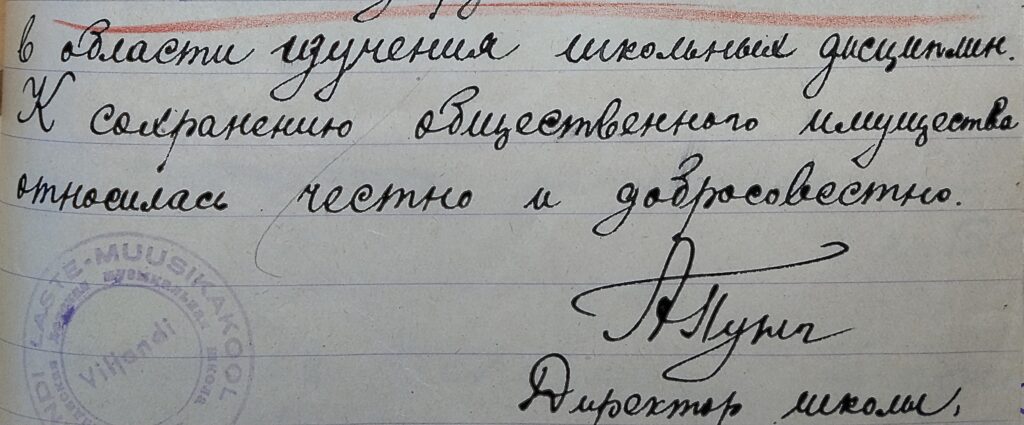 в области изучения школьных дисциплин.
К сохранению общественного имущества
относилась честно и добросовестно.
Директор школы,
LASTE-MUUSIKAKOOL
музыкальная школа
Viljandi